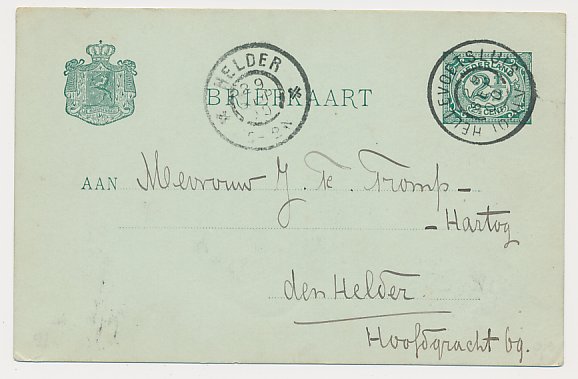 HELDER
BRIEFKAART
NEDERLAND
2½
CENT
HELLEVOETSLUIS
AAN Mevrouw J. Te. Tromp-
-Hartog
den Helder.
Hoofdgracht 69.